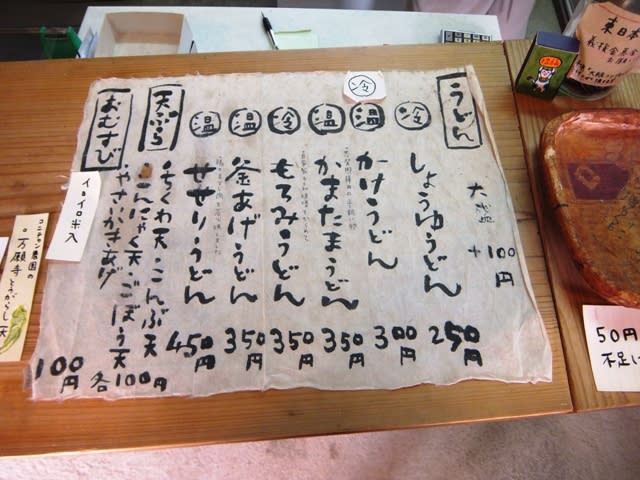 うどん
大盛
+100円
冷
しょうゆうどん
250円
冷
温
かけうどん
300円
温
かまたまうどん
350円
冷
もろみうどん
350円
温
釜あげうどん
350円
温
せせりうどん
450円
天ぷら
ちくわ天・こんぶ天
・こんにゃく天・ごぼう天
・やさいかきあげ
各100円
おむすび
100円
イロイロ米入
コニチャン農園の
万願寺とうがらし天
東日本
義援金募金
50円
不足